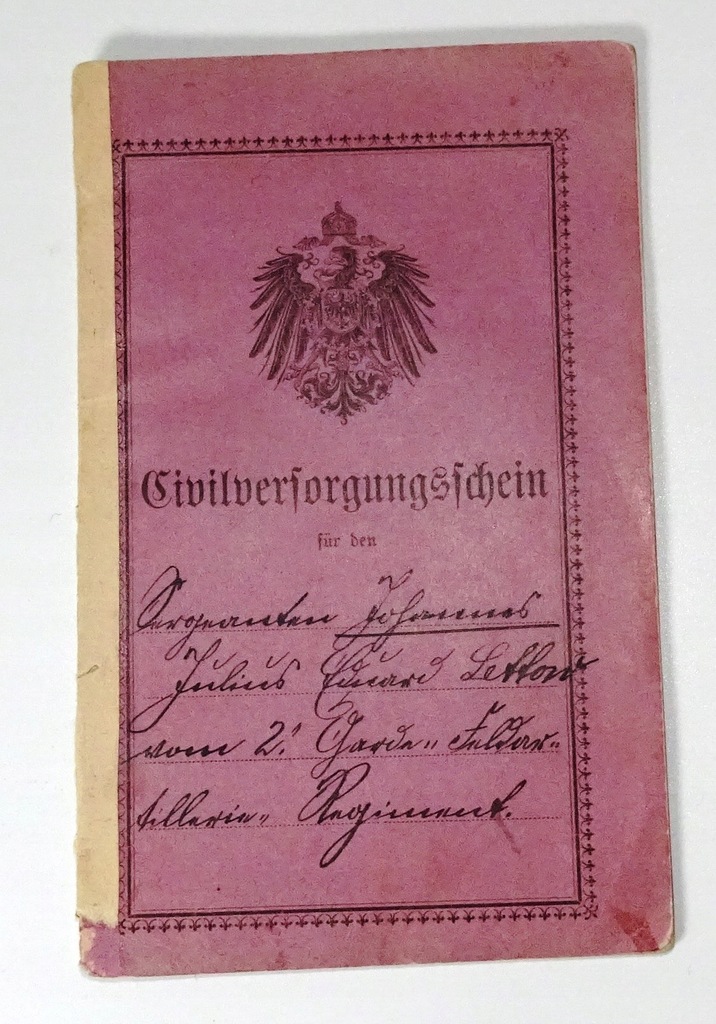 Civilversorgungsschein
für den
Sergeanten Johannes
Julius Eduard Lettow
vom 2. Garde-Feldar-
tillerie-Regiment.